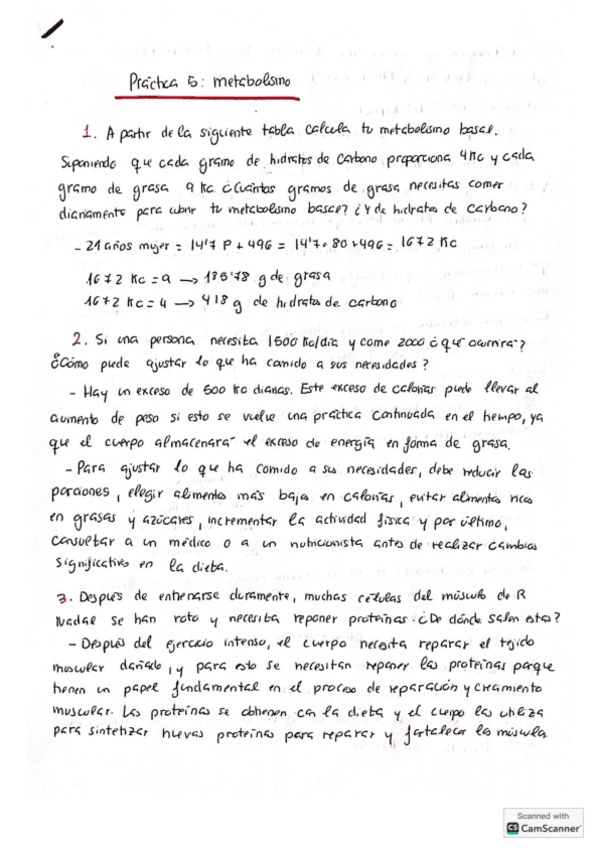 Práctica 5: metabolismo
1. A partir de la siguiente tabla calcula tu metabolismo basal.
Suponiendo que cada gramo de hidratos de carbono proporciona 4Kc y cada
gramo de grasa 9 Kc ¿Cuántos gramos de grasa necesitas comer
diariamente para cubrir tu metabolismo basal? ¿Y de hidratos de carbono?
- 21 años mujer = 14'7 P + 496 = 14'7 · 80 + 496 = 1672 Kc
1672 Kc = 9 → 185'78 g de grasa
1672 Kc = 4 → 418 g de hidratos de carbono
2. Si una persona necesita 1500 Kc/día y come 2000 ¿qué ocurrirá?
¿Cómo puede ajustar lo que ha comido a sus necesidades?
- Hay un exceso de 500 Kc diarias. Este exceso de calorías puede llevar al
aumento de peso si esto se vuelve una práctica continuada en el tiempo, ya
que el cuerpo almacenará el exceso de energía en forma de grasa.
- Para ajustar lo que ha comido a sus necesidades, debe reducir las
porciones, elegir alimentos más bajos en calorías, evitar alimentos ricos
en grasas y azúcares, incrementar la actividad física y por último,
consultar a un médico o a un nutricionista antes de realizar cambios
significativos en la dieta.
3. Después de entrenarse duramente, muchas células del músculo de R
Nadal se han roto y necesita reponer proteínas. ¿De dónde salen estas?
- Después del ejercicio intenso, el cuerpo necesita reparar el tejido
muscular dañado, y para esto se necesitan reponer las proteínas porque
tienen un papel fundamental en el proceso de reparación y crecimiento
muscular. Las proteínas se obtienen con la dieta y el cuerpo las utiliza
para sintetizar nuevas proteínas para reparar y fortalecer los músculos
Scanned with
CS CamScanner